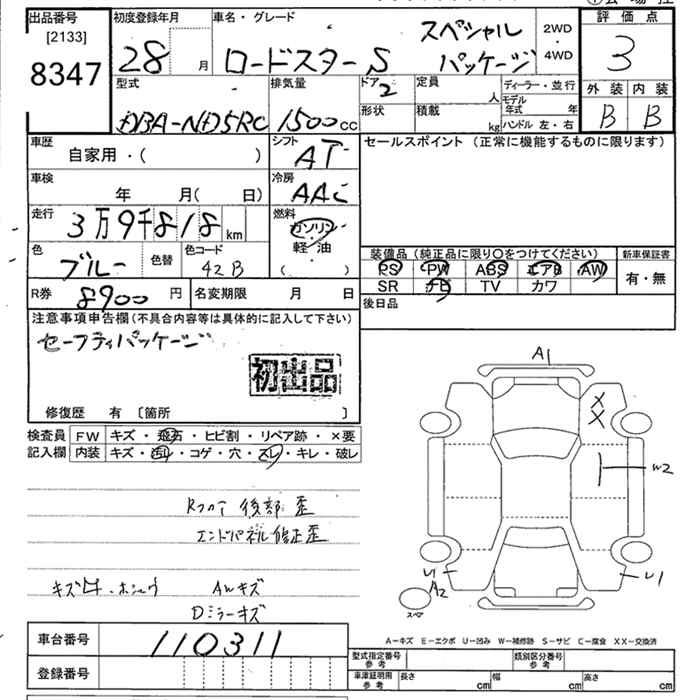 出品番号 初度登録年月 車名・グレード 評価点
[2133] 28 月 ロードスター S スペシャルパッケージ 2WD・4WD 3
8347
型式 排気量 ドア 2 定員 人 ディーラー・並行 外装 内装
DBA-ND5RC 1500cc 形状 積載 kg モデル年式 年 B B
ハンドル 左・右
車歴 シフト セールスポイント (正常に機能するものに限ります)
自家用・( ) AT
車検 冷房
年 月( 日) AAC
走行 3万9千818km 燃料
ガソリン
軽・油
( )
色 ブルー 色替 色コード 42B
装備品(純正品に限り〇をつけてください) 新車保証書
PS PW ABS エアB AW 有・無
SR ナビ TV カワ
R券 8900 円 名変期限 月 日 後日品
注意事項申告欄(不具合内容等は具体的に記入して下さい)
セーフティパッケージ
初出品
修復歴 有 〔箇所 〕
検査員 FW キズ・飛石・ヒビ割・リペア跡・×要
記入欄 内装 キズ・汚れ・コゲ・穴・スレ・キレ・破レ
A1
X
X
W2
U1
A2
U1
スペア
Rフロア 後部 歪
エンドパネル修正歪
AWキズ
Dミラーキズ
A－キズ E－エクボ U－凹み W－補修跡 S－サビ C－腐食 XX－交換済
車台番号 110311
登録番号
型式指定番号 参考 類別区分番号 参考
車庫証明用 参考 長さ cm 幅 cm 高さ cm